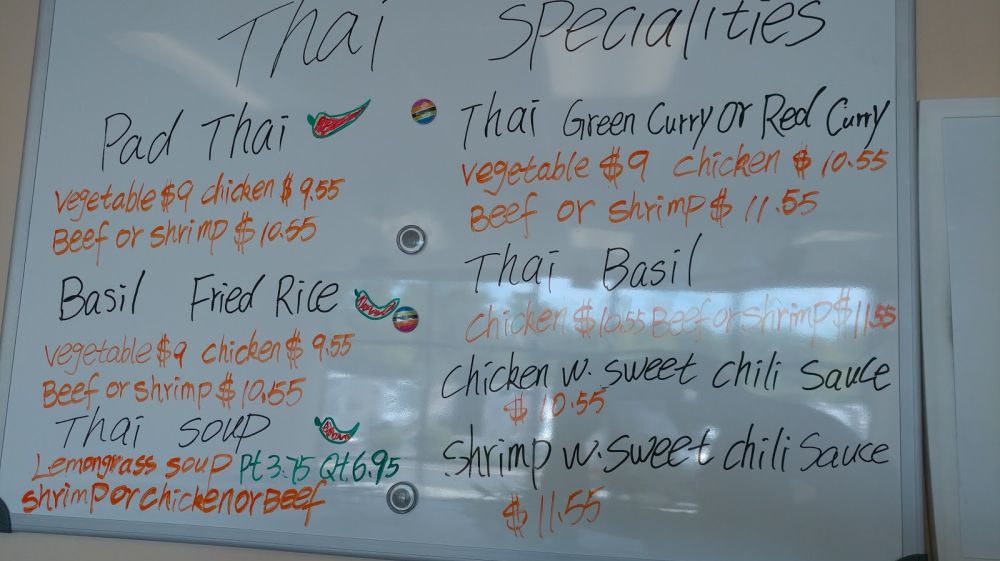 Thai Specialities
Pad Thai
vegetable $9 chicken $ 9.55
Beef or shrimp $ 10.55
Basil Fried Rice
vegetable $9 chicken $ 9.55
Beef or shrimp $ 10.55
Thai soup
Lemongrass soup Pt 3.75 Qt 6.95
shrimp or chicken or Beef
Thai Green Curry or Red Curry
vegetable $9 chicken $ 10.55
Beef or shrimp $ 11.55
Thai Basil
chicken $10.55 Beef or shrimp $11.55
chicken w. sweet chili sauce
$ 10.55
shrimp w. sweet chili sauce
$ 11.55